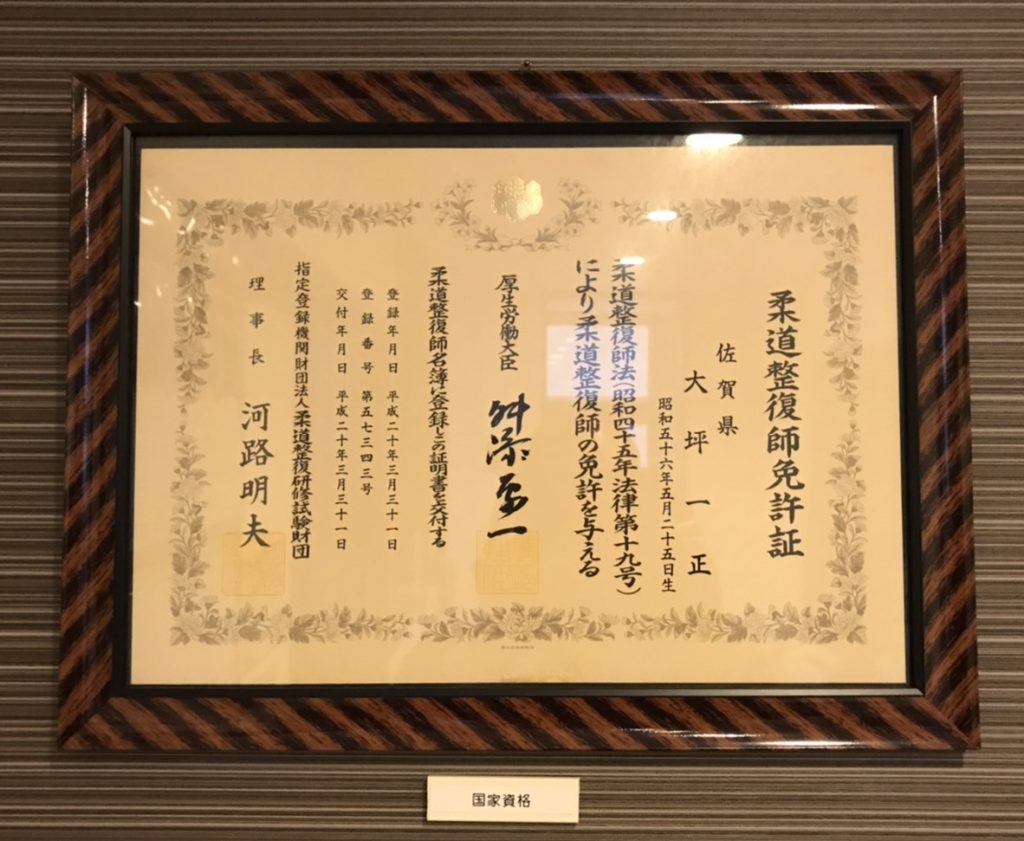 柔道整復師免許証
佐賀県
大坪一正
昭和五十六年五月二十五日生
柔道整復師法(昭和四十五年法律第十九号)
により柔道整復師の免許を与える
厚生労働大臣 舛添要一
柔道整復師名簿に登録しこの証明書を交付する
登録年月日 平成二十年三月三十一日
登録番号 第五七三四三号
交付年月日 平成二十年三月三十一日
指定登録機関財団法人柔道整復研修試験財団
理事長 河路明夫
国家資格